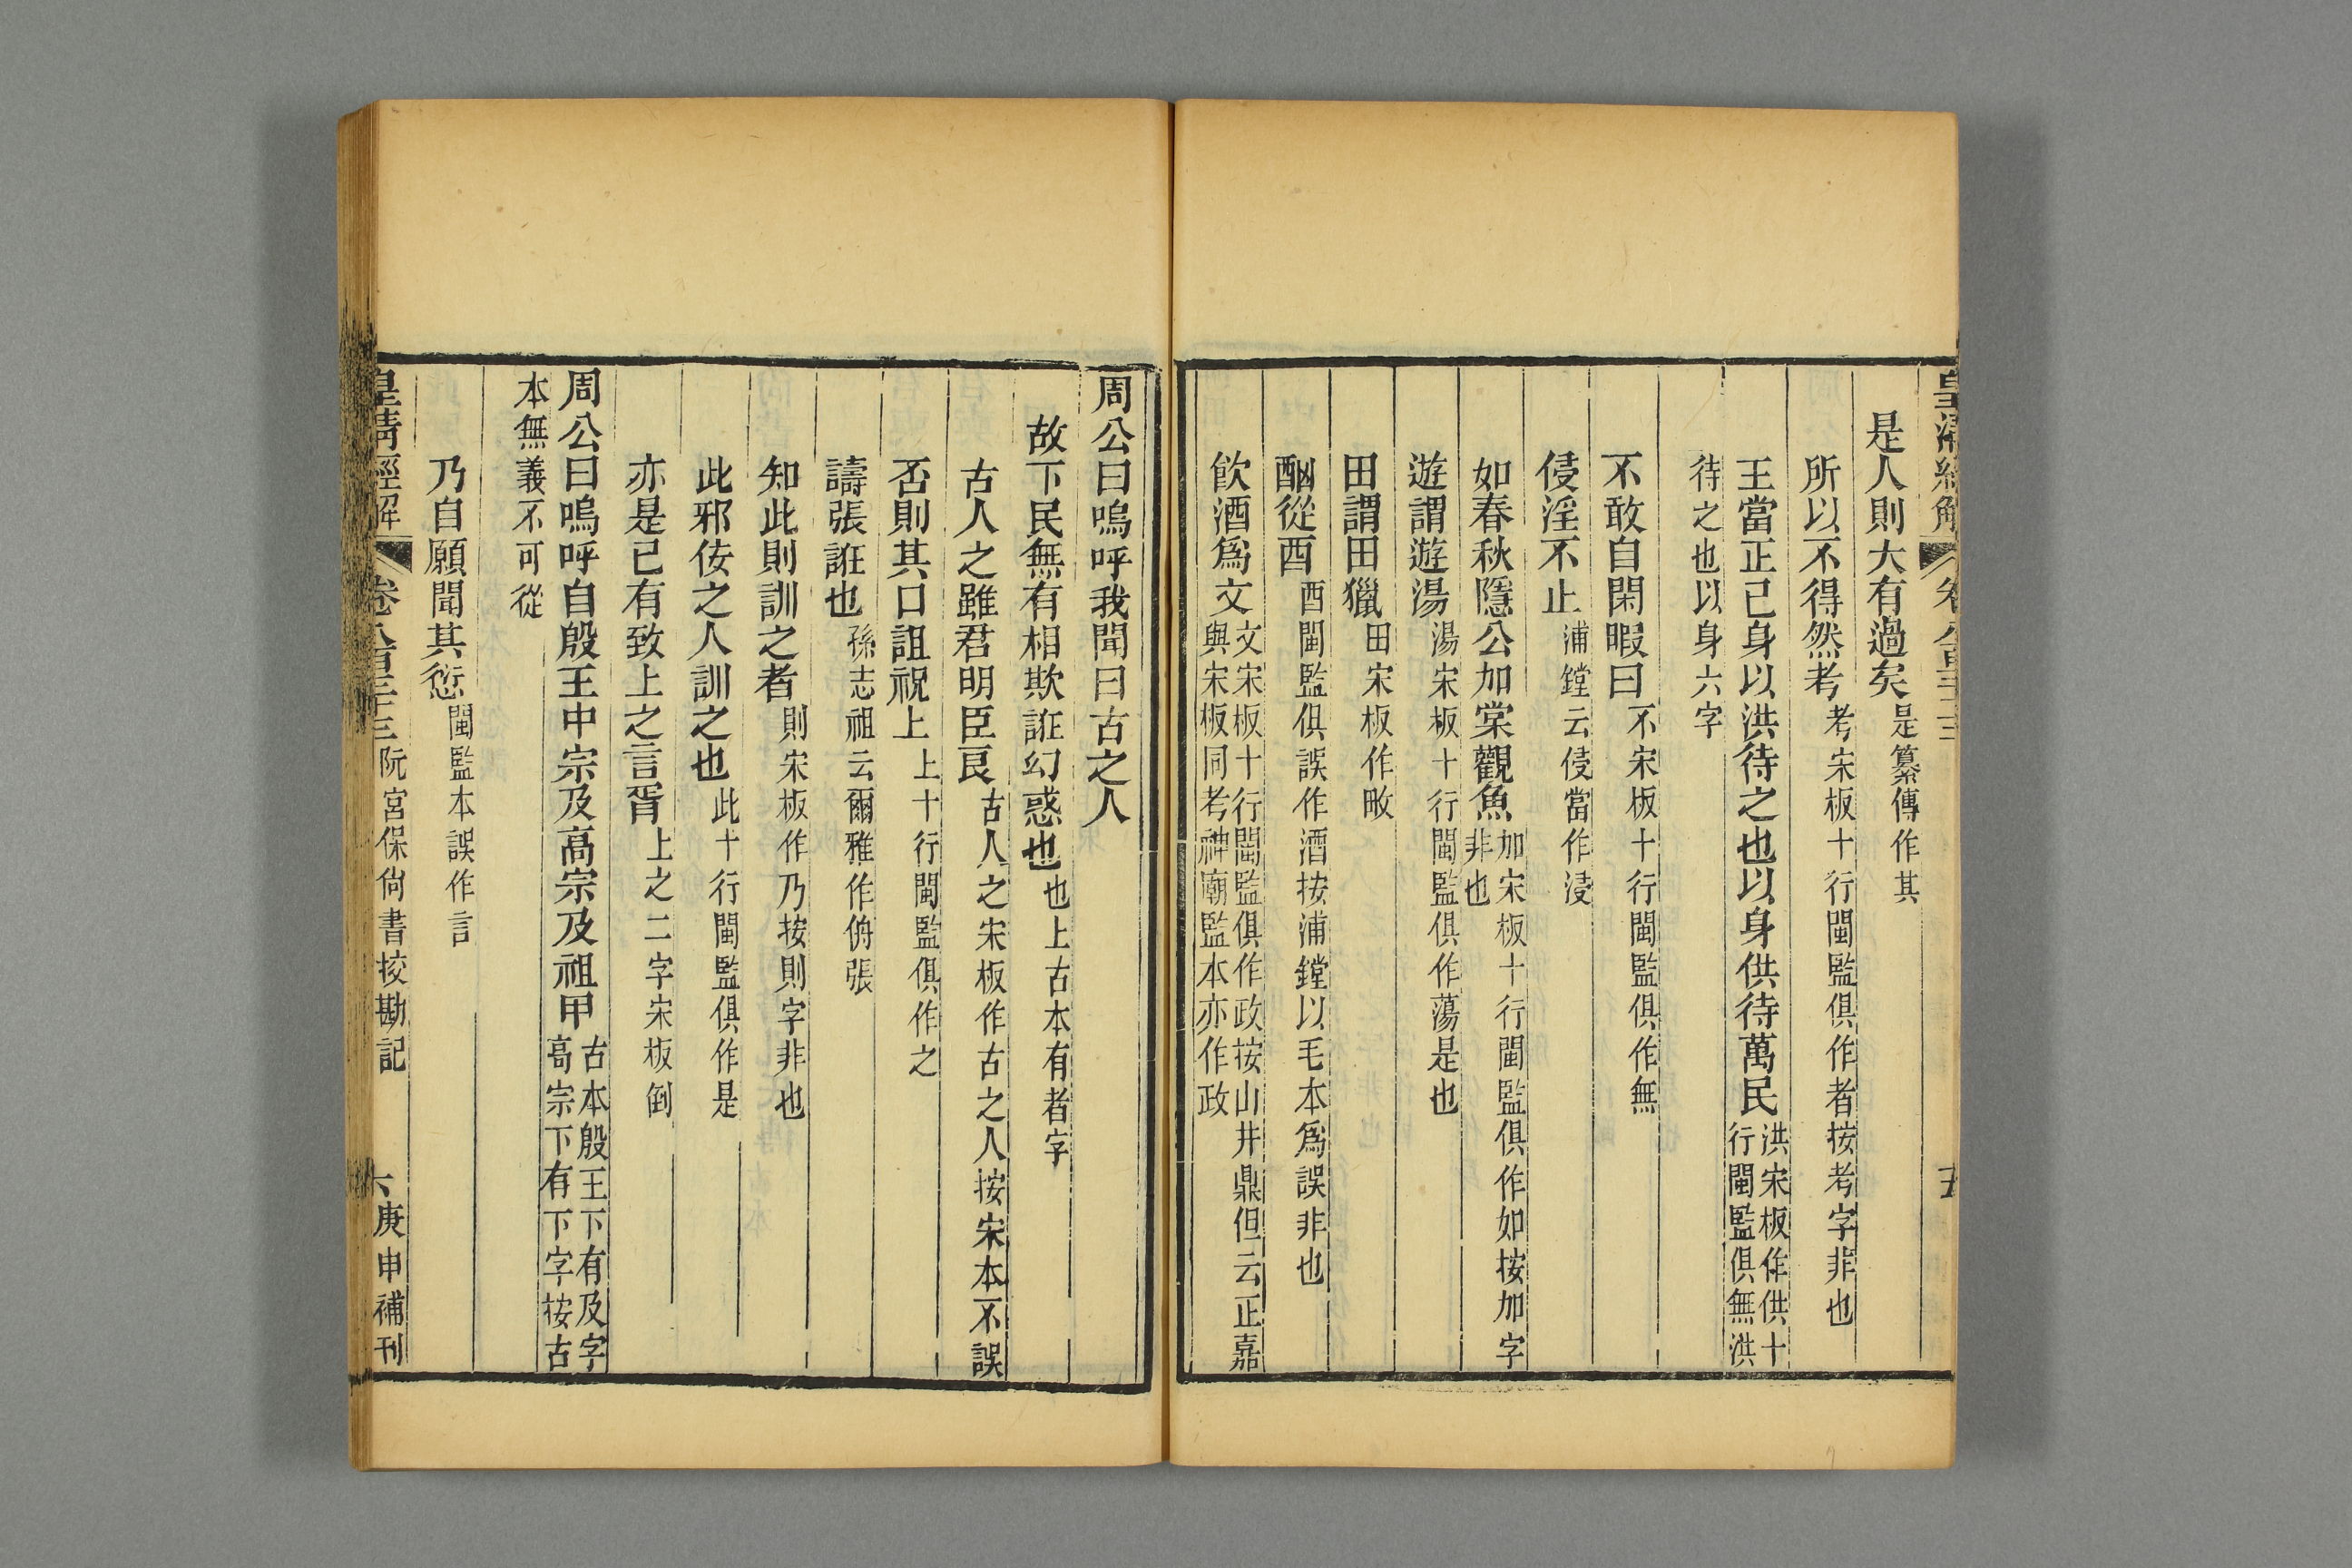 皇清經解 卷八百三十三 十五
是人則大有過矣是纂傳作其
所以不得然考考宋板十行閩監俱作者按考字非也
王當正己身以洪待之也以身供待萬民洪宋板作供十行閩監俱無洪
待之也以身六字
不敢自閑暇曰不宋板十行閩監俱作無
侵淫不止浦鏜云侵當作浸
如春秋隱公加棠觀魚加宋板十行閩監俱作如按加字非也
遊謂遊湯湯宋板十行閩監俱作蕩是也
田謂田獵田宋板作畋
酗從酉酉閩監俱誤作酒按浦鏜以毛本爲誤非也
飮酒爲文文宋板十行閩監俱作政按山井鼎但云正嘉與宋板同考神廟監本亦作政
周公曰嗚呼我聞曰古之人
故下民無有相欺誑幻惑也也上古本有者字
古人之雖君明臣良古人之宋板作古之人按宋本不誤
否則其口詛祝上上十行閩監俱作之
譸張誑也孫志祖云爾雅作侜張
知此則訓之者則宋板作乃按則字非也
此邪佞之人訓之也此十行閩監俱作是
亦是已有致上之言胥上之二字宋板倒
周公曰嗚呼自殷王中宗及高宗及祖甲古本殷王下有及字高宗下有下字按古
本無義不可從
乃自願聞其愆閩監本誤作言
皇清經解 卷八百三十三 阮宮保尙書挍勘記 六 庚申補刊